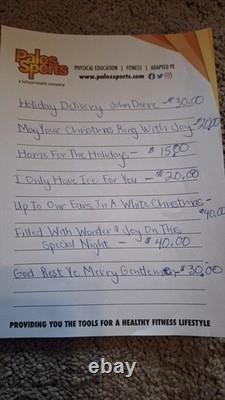 Palos Sports
a School Health company
PHYSICAL EDUCATION | FITNESS | ADAPTED PE
www.palossports.com
Holiday Delivery John Deere - $30.00
May Your Christmas Ring With Joy - $20.00
Home For The Holidays - $15.00
I Only Have Ice For You - $20.00
Up To Our Ears In A White Christmas -
$40.00
Filled With Wonder & Joy On This
Special Night - $40.00
God Rest Ye Merry Gentlemen - $30.00
PROVIDING YOU THE TOOLS FOR A HEALTHY FITNESS LIFESTYLE